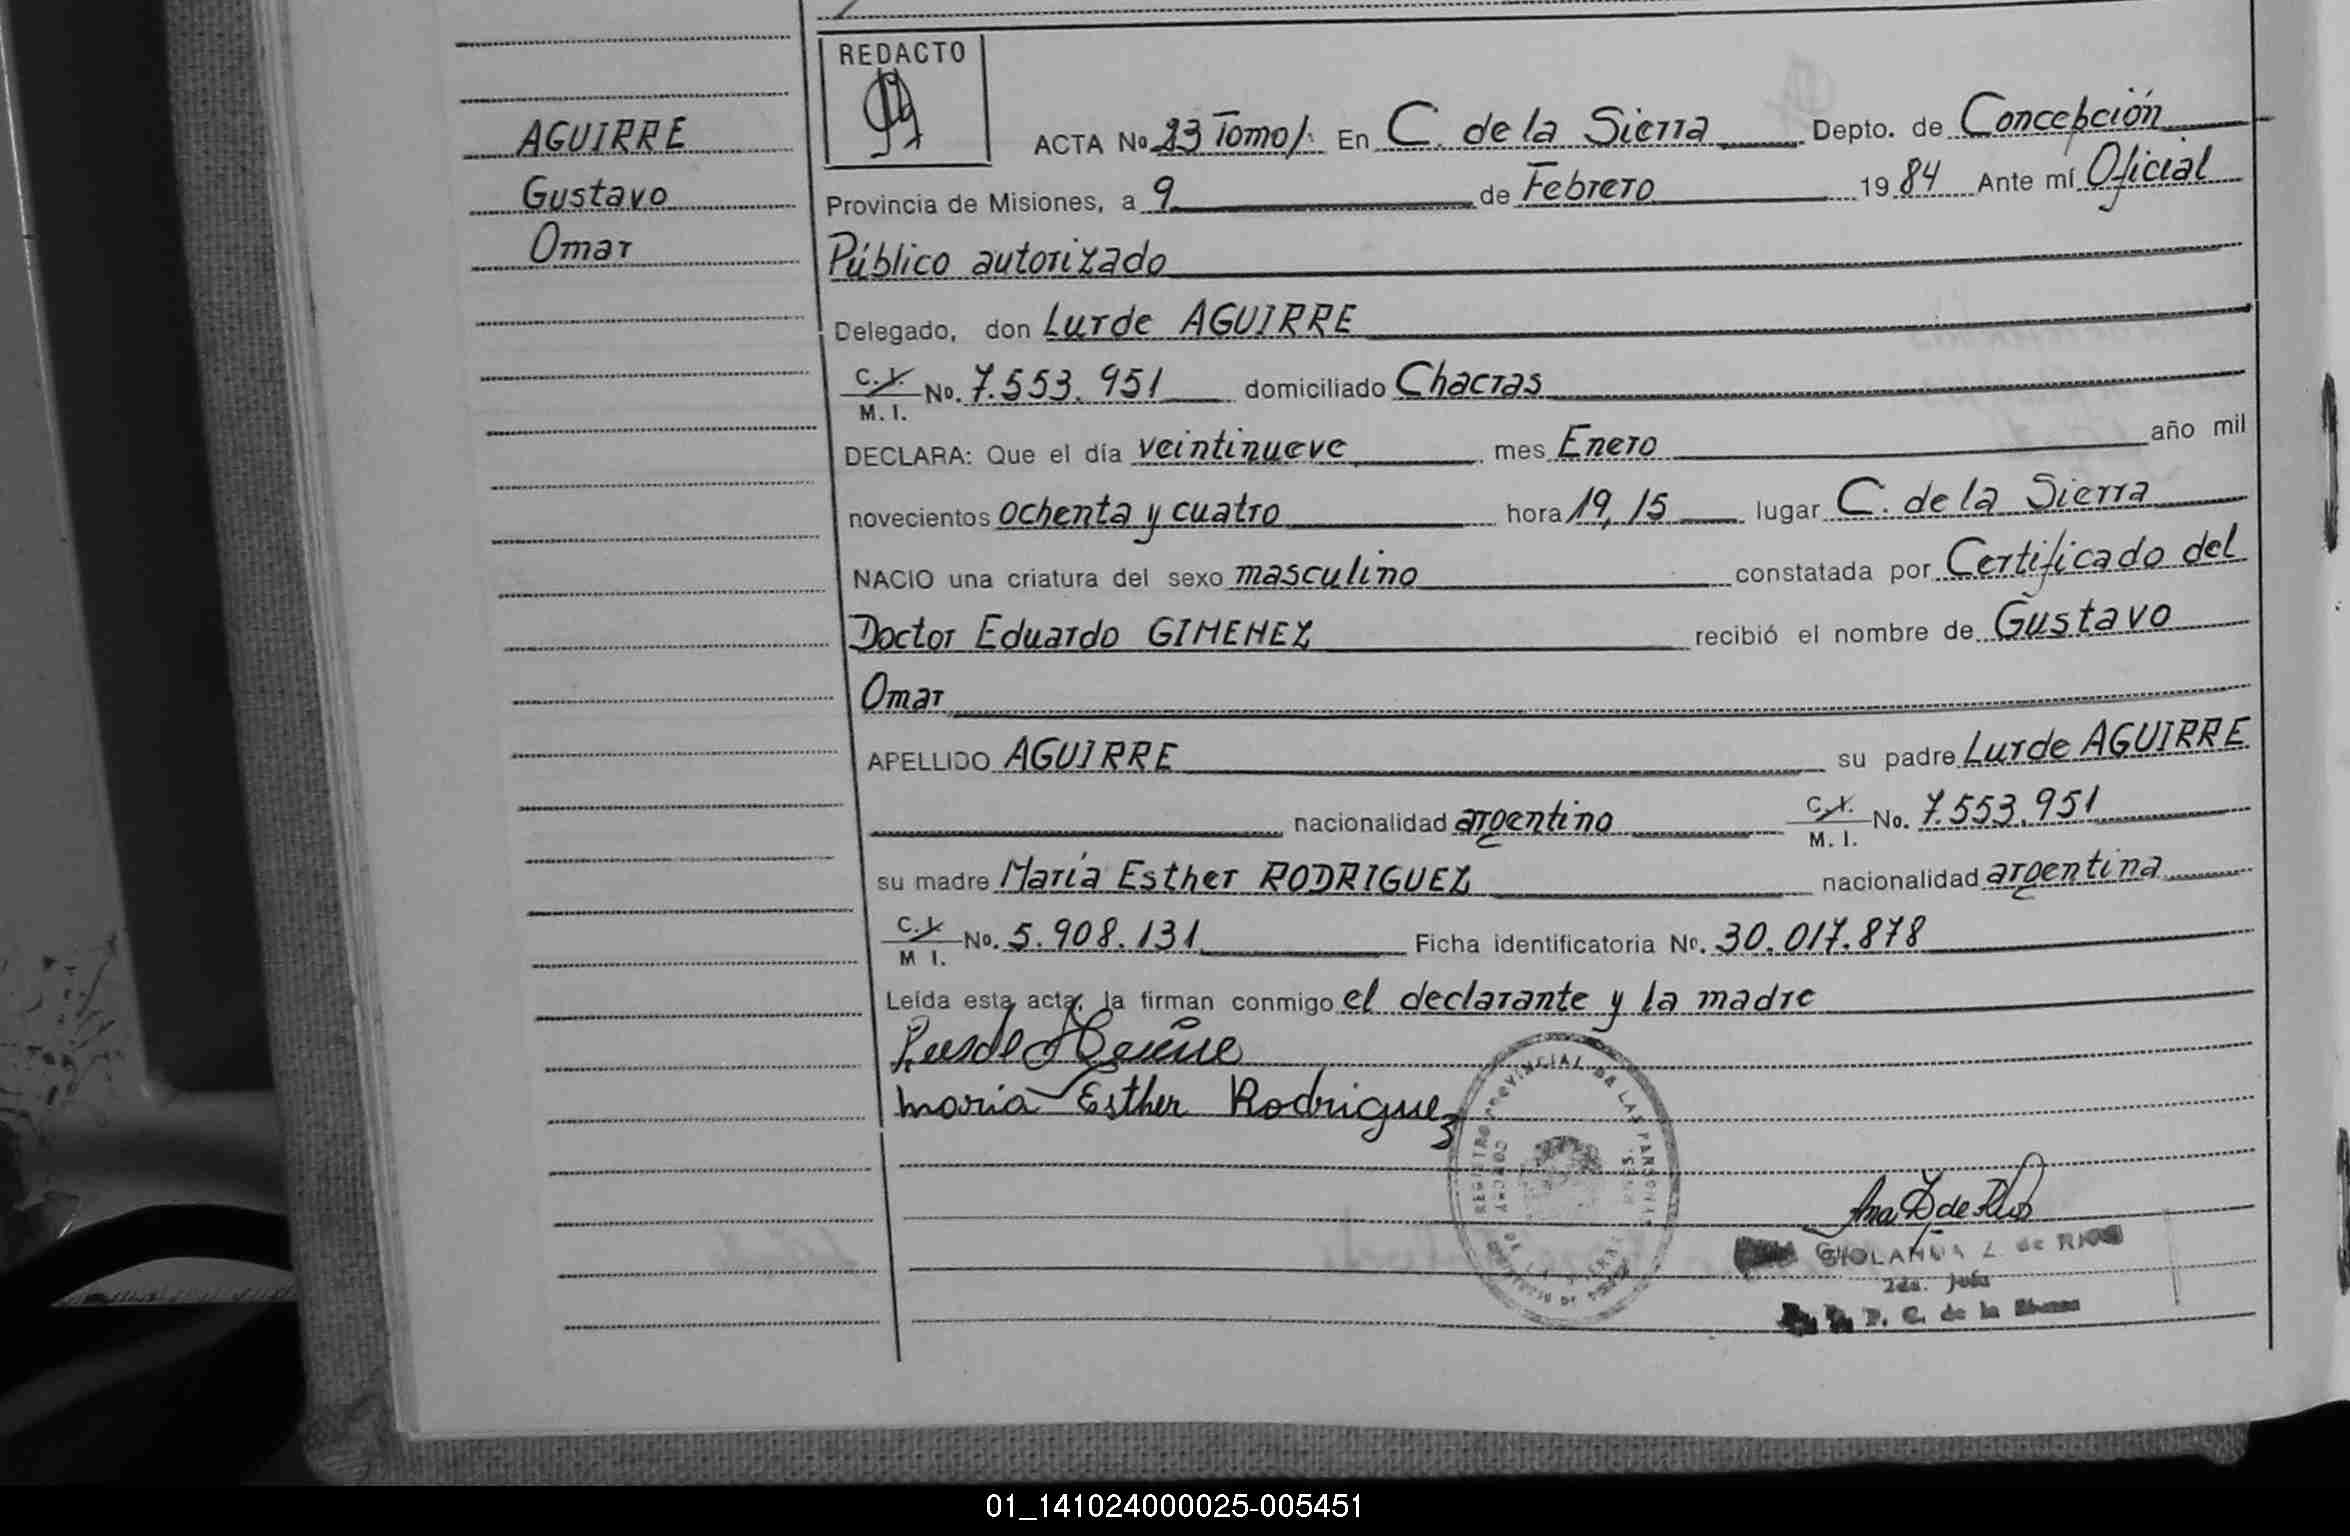 REDACTO
AGUIRRE
Gustavo
Omar
ACTA No 23 Tomo 1. En C. de la Sierra Depto. de Concepción
Provincia de Misiones, a 9 de Febrero 1984 Ante mí Oficial
Público autorizado
Delegado, don Lurde AGUIRRE
C.I. M.I. No. 7.553.951 domiciliado Chacras
DECLARA: Que el día veintinueve mes Enero año mil
novecientos ochenta y cuatro hora 19,15 lugar C. de la Sierra
NACIO una criatura del sexo masculino constatada por Certificado del
Doctor Eduardo GIMENEZ recibió el nombre de Gustavo
Omar
APELLIDO AGUIRRE su padre Lurde AGUIRRE
nacionalidad argentino C.I. M.I. No. 7.553.951
su madre María Esther RODRIGUEZ nacionalidad argentina
C.I. M I. No. 5.908.131 Ficha identificatoria No. 30.017.878
Leída esta acta, la firman conmigo el declarante y la madre
maria Esther Rodriguez
REGISTRO PROVINCIAL DE LAS PERSONAS
Z. de RIOS
2da. Jefa
P. C. de la Sierra
01_141024000025-005451